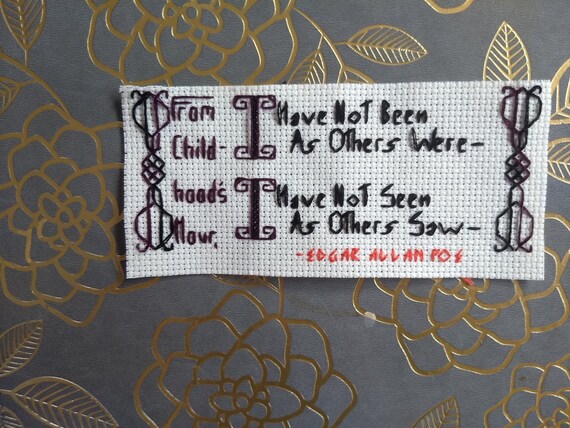 From
Child-
hood's
Hour,
I Have Not Been
As Others Were-
I Have Not Seen
As Others Saw-
-EDGAR ALLAN POE